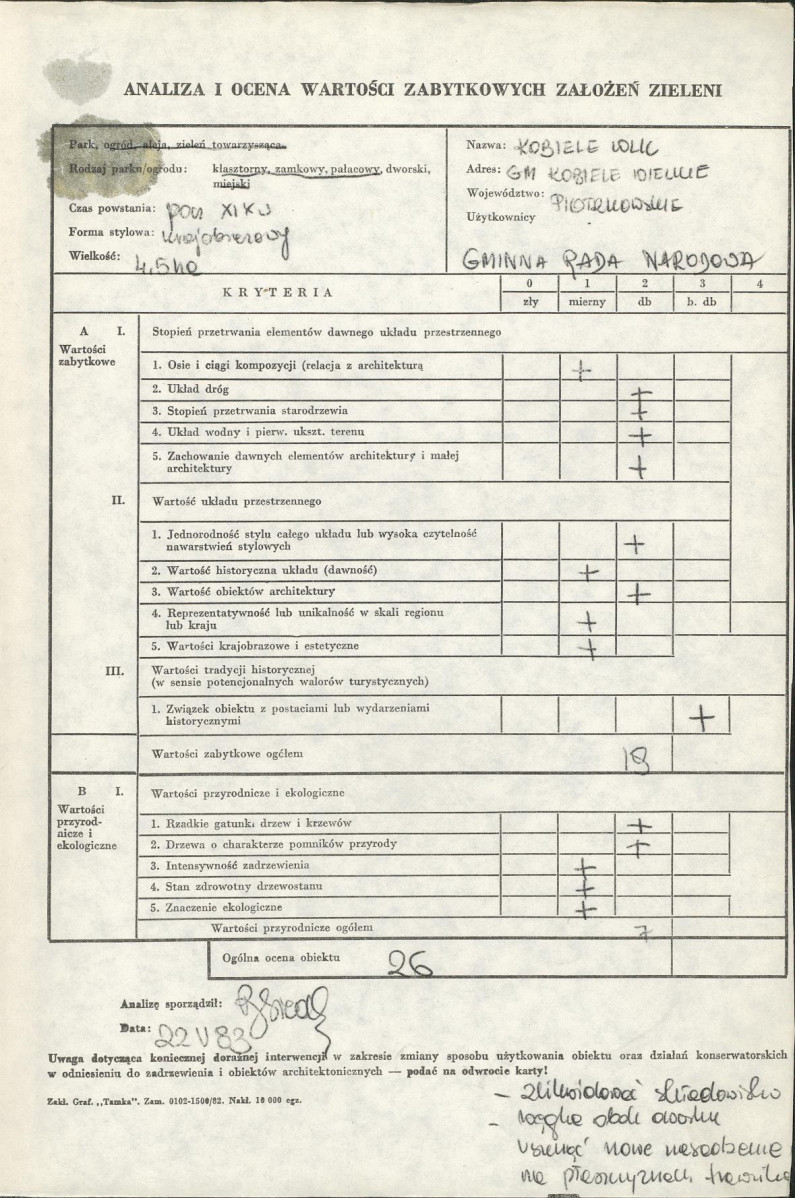 ANALIZA I OCENA WARTOŚCI ZABYTKOWYCH ZAŁOŻEŃ ZIELENI
Park, ogród, aleja, zieleń towarzysząca.
Rodzaj parku/ogrodu: klasztorny, zamkowy, pałacowy, dworski,
miejski
Czas powstania: pocz XIX w
Forma stylowa: krajobrazowy
Wielkość: 4,5 ha
Nazwa: KOBIELE WLK
Adres: GM KOBIELE WIELKIE
Województwo: PIOTRKOWSKIE
Użytkownicy
GMINNA RADA NARODOWA
KRYTERIA
0 1 2 3 4
zły mierny db b. db
A I. Stopień przetrwania elementów dawnego układu przestrzennego
Wartości
zabytkowe
1. Osie i ciągi kompozycji (relacja z architekturą +
2. Układ dróg +
3. Stopień przetrwania starodrzewia +
4. Układ wodny i pierw. ukszt. terenu +
5. Zachowanie dawnych elementów architektury i małej
architektury +
II. Wartość układu przestrzennego
1. Jednorodność stylu całego układu lub wysoka czytelność
nawarstwień stylowych +
2. Wartość historyczna układu (dawność) +
3. Wartość obiektów architektury +
4. Reprezentatywność lub unikalność w skali regionu
lub kraju +
5. Wartości krajobrazowe i estetyczne +
III. Wartości tradycji historycznej
(w sensie potencjonalnych walorów turystycznych)
1. Związek obiektu z postaciami lub wydarzeniami
historycznymi +
Wartości zabytkowe ogółem 19
B I. Wartości przyrodnicze i ekologiczne
Wartości
przyrod-
nicze i
ekologiczne
1. Rzadkie gatunki drzew i krzewów +
2. Drzewa o charakterze pomników przyrody +
3. Intensywność zadrzewienia +
4. Stan zdrowotny drzewostanu +
5. Znaczenie ekologiczne +
Wartości przyrodnicze ogółem 7
Ogólna ocena obiektu 26
Analizę sporządził:
Data: 22 V 83
Uwaga dotycząca koniecznej doraźnej interwencji w zakresie zmiany sposobu użytkowania obiektu oraz działań konserwatorskich
w odniesieniu do zadrzewienia i obiektów architektonicznych — podać na odwrocie karty!
Zakł. Graf. „Tamka". Zam. 0102-1500/82. Nakł. 10 000 egz.
- zlikwidować składowisko
- węgla obok dworku
usunąć nowe nasadzenie
na płaszczyznach trawnika